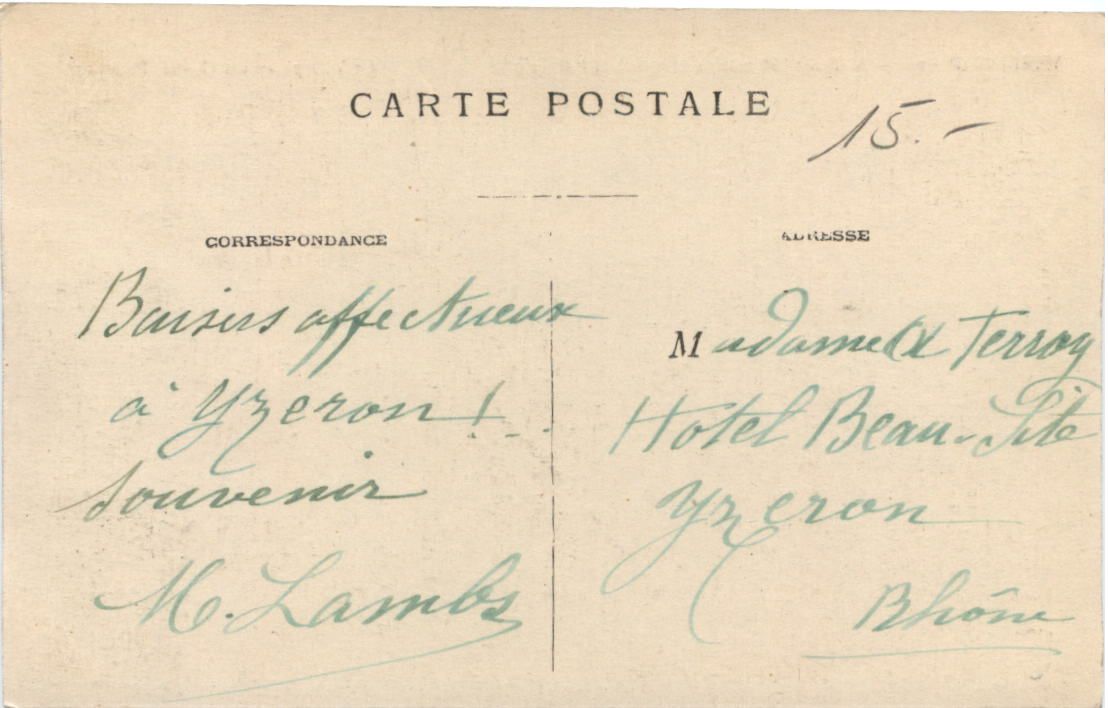 CARTE POSTALE
15.-
CORRESPONDANCE
Baisers affectueux
à Yzeron !..
Souvenir
M. Lambs
ADRESSE
Madame Terroy
Hotel Beau-Site
Yzeron
Rhône